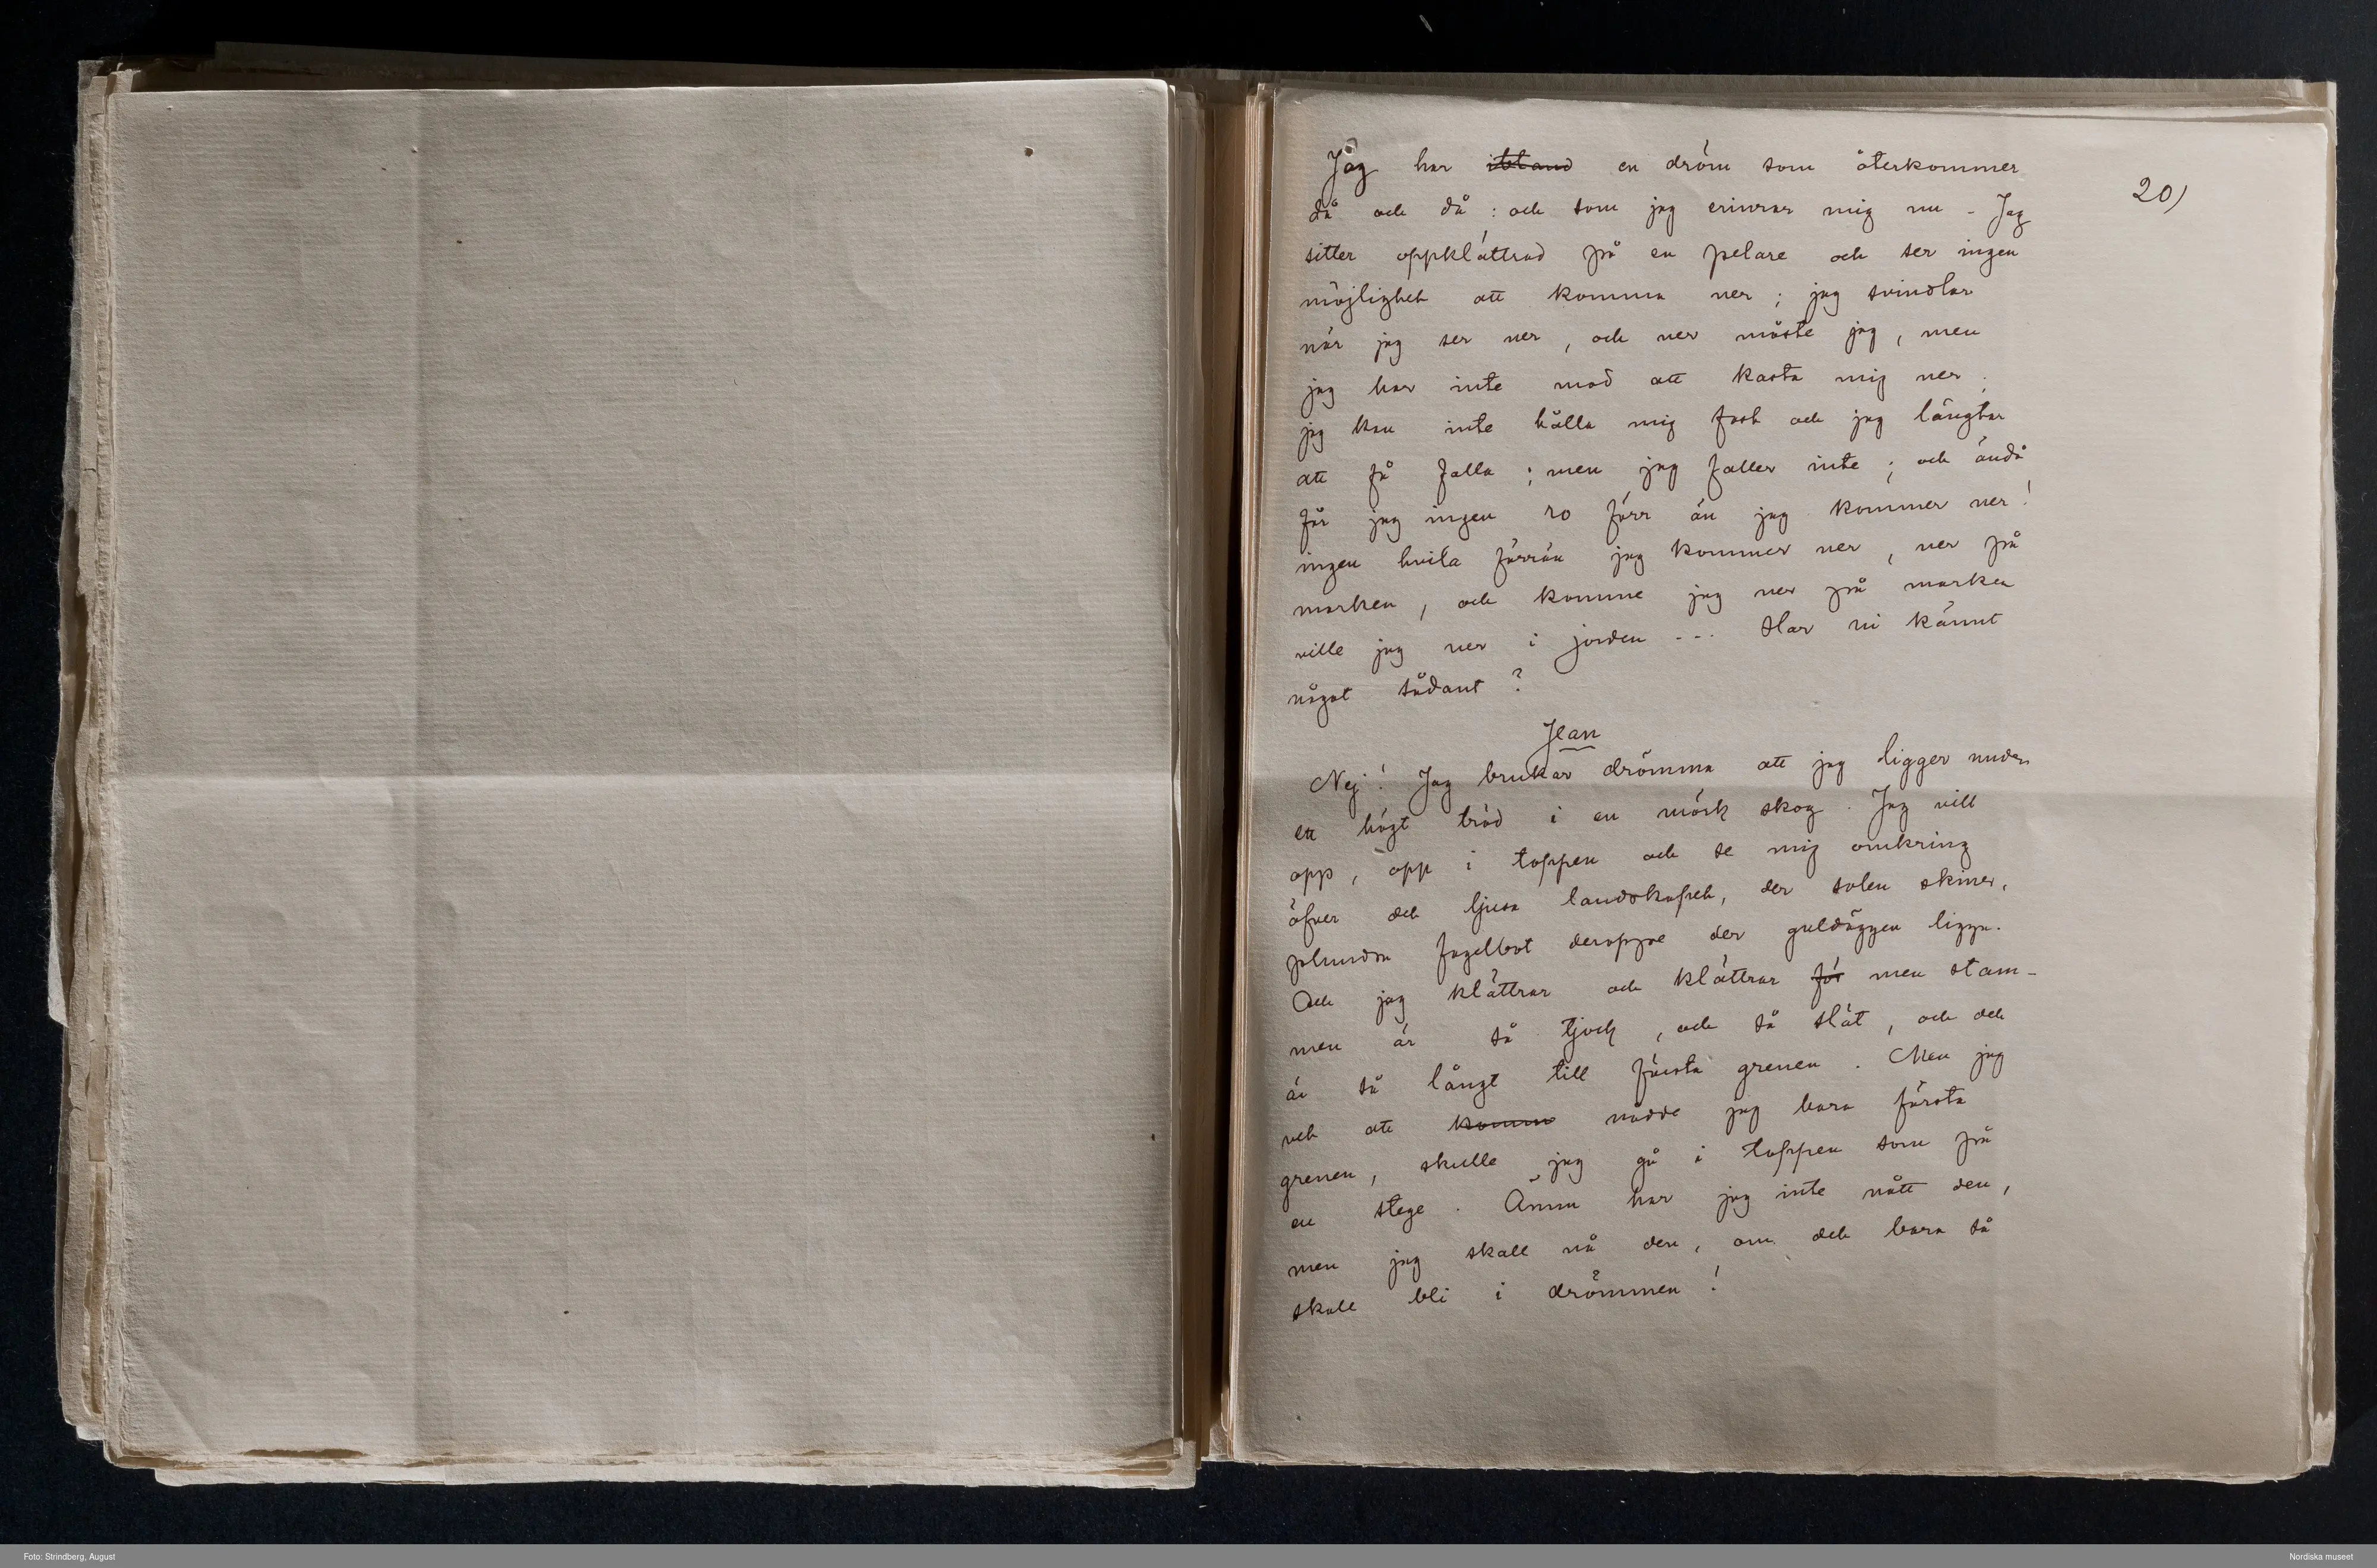 20)
Jag har ~~ibland~~ en dröm som återkommer
då och då : och som jag erinrar mig nu - Jag
sitter oppklättrad på en pelare och ser ingen
möjlighet att komma ner ; jag svindlar
när jag ser ner , och ner måste jag , men
jag har inte mod att kasta mig ner ;
jag kan inte hålla mig fast och jag längtar
att få falla ; men jag faller inte ; och ändå
får jag ingen ro förr än jag kommer ner !
ingen hvila förrän jag kommer ner , ner på
marken , och komme jag ner på marken
ville jag ner i jorden --- Har ni kännt
något sådant ?
Jean
Nej ! Jag brukar drömma att jag ligger under
ett högt träd i en mörk skog . Jag vill
opp , opp i toppen och se mig omkring
öfver det ljusa landskapet, der solen skiner,
plundra fogelbot deroppe der guldäggen ligga.
Och jag klättrar och klättrar ~~för~~ men stam-
men är så tjock , och så slät , och det
är så långt till första grenen . Men jag
vet att ~~komme~~ nådde jag bara första
grenen , skulle jag gå i toppen som på
en stege . Ännu har jag inte nått den ,
men jag skall nå den , om det bara så
skall bli i drömmen !
Foto: Strindberg, August
Nordiska museet